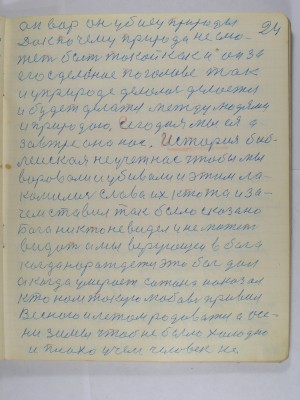 24
он вор он убиец природы
Вот почему природа не мо-
жет быть такой как и он за
его сделоное по голове так
и у природе делалося делается
и будет делатся между людями
и природою, Сегодня мы её а
завтре она нас. История биб-
лейская не учет нас чтобы мы
воровали и убивали и этим ла-
комилися слава их кто то и за-
чем ставил так было сказано
Бога никто не видел и не может
видит и мы верующеи в бога
когда нарождети это бог дал
и когда умерает сатана показал
кто нам такую любов привил
Весною и летом родовати а осе-
ни зимы чтоб не было холодно
и плохо чем человек не